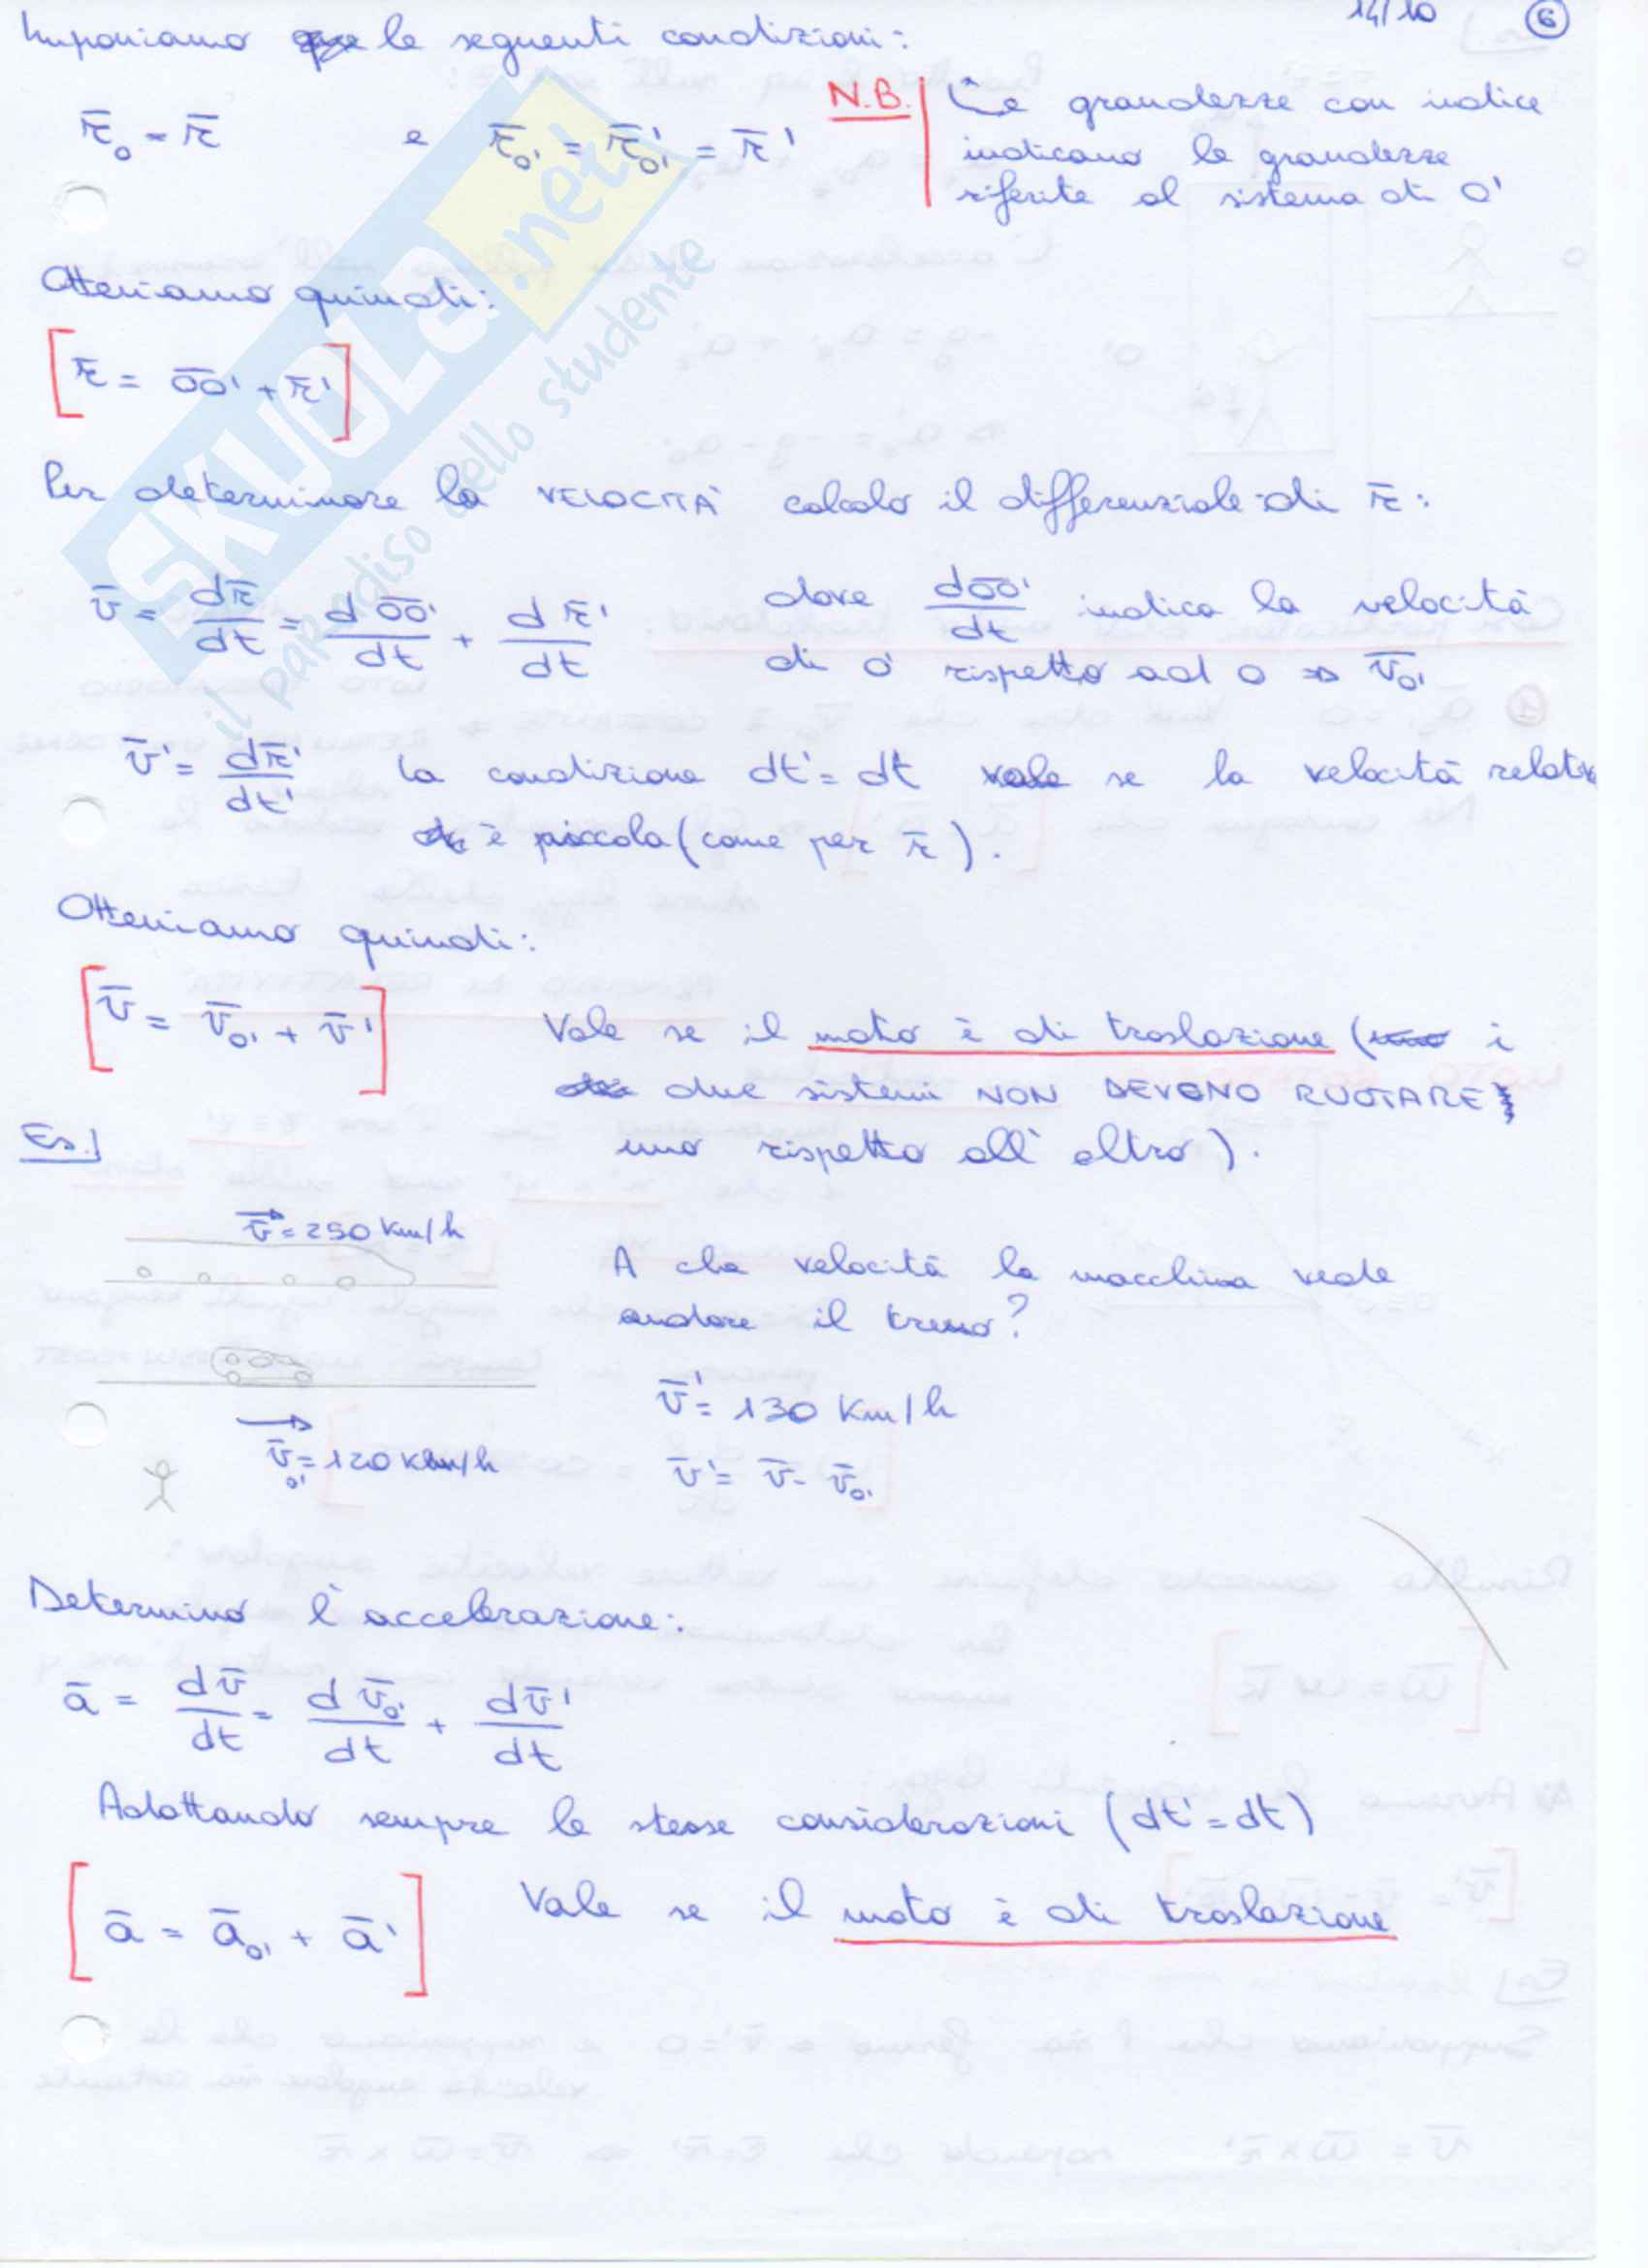 14/10 6
Imponiamo le seguenti condizioni:
r̄₀ = r̄ e r̄₀' = r̄'₀' = r̄'
N.B. Le grandezze con indice
indicano le grandezze
riferite al sistema di O'
Otteniamo quindi:
[r̄ = O̅O̅' + r̄']
Per determinare la VELOCITÀ calcolo il differenziale di r̄:
v̄ = dr̄/dt = dO̅O̅'/dt + dr̄'/dt dove dO̅O̅'/dt indica la velocità
di O' rispetto ad O ⇒ v̄₀'
v̄' = dr̄'/dt' la condizione dt' = dt vale se la velocità relativ
è piccola (come per r̄).
Otteniamo quindi:
[v̄ = v̄₀' + v̄'] Vale se il moto è di traslazione (i
due sistemi NON DEVONO RUOTARE
uno rispetto all'altro).
Es.
v̄ = 250 Km/h
A che velocità la macchina vede
andare il treno?
v̄' = 130 Km/h
v̄₀' = 120 Km/h v̄' = v̄ - v̄₀'
Determino l'accelerazione:
ā = dv̄/dt = dv̄₀'/dt + dv̄'/dt
Adottando sempre le stesse considerazioni (dt' = dt)
[ā = ā₀' + ā'] Vale se il moto è di traslazione
SKUOLA.net
il paradiso dello studente